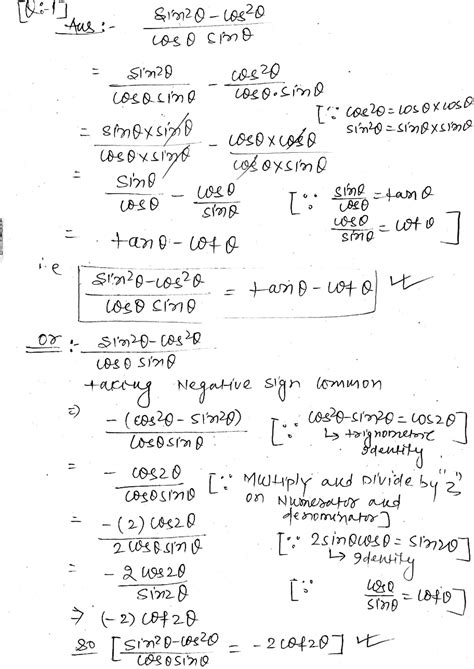 [Q:-1]
Aus :- sin²θ - cos²θ / cosθ sinθ
= sin²θ / cosθ sinθ - cos²θ / cosθ.sinθ
[∵ cos²θ = cosθ×cosθ
sin²θ = sinθ×sinθ
= sinθ×sinθ / cosθ×sinθ - cosθ×cosθ / cosθ×sinθ
= sinθ / cosθ - cosθ / sinθ [∵ sinθ / cosθ = tanθ
cosθ / sinθ = cotθ ]
= tanθ - cotθ
i.e sin²θ-cos²θ / cosθ sinθ = tanθ - cotθ
or :- sin²θ-cos²θ / cosθ sinθ
taking Negative sign common
⇒ -(cos²θ - sin²θ) / cosθ sinθ [∵ cos²θ-sin²θ = cos2θ
↳ trignometric
Identity ]
= - cos2θ / cosθ sinθ [∵ Multiply and Divide by "2"
on Numerator and
denominator]
= -(2) cos2θ / 2 cosθ sinθ [∵ 2sinθcosθ = sin2θ]
↳ Identity
= - 2 cos2θ / sin2θ [∵ cosθ / sinθ = cotθ]
⇒ (-2) cot2θ
so [ sin²θ-cos²θ / cosθ sinθ = -2 cot2θ ]